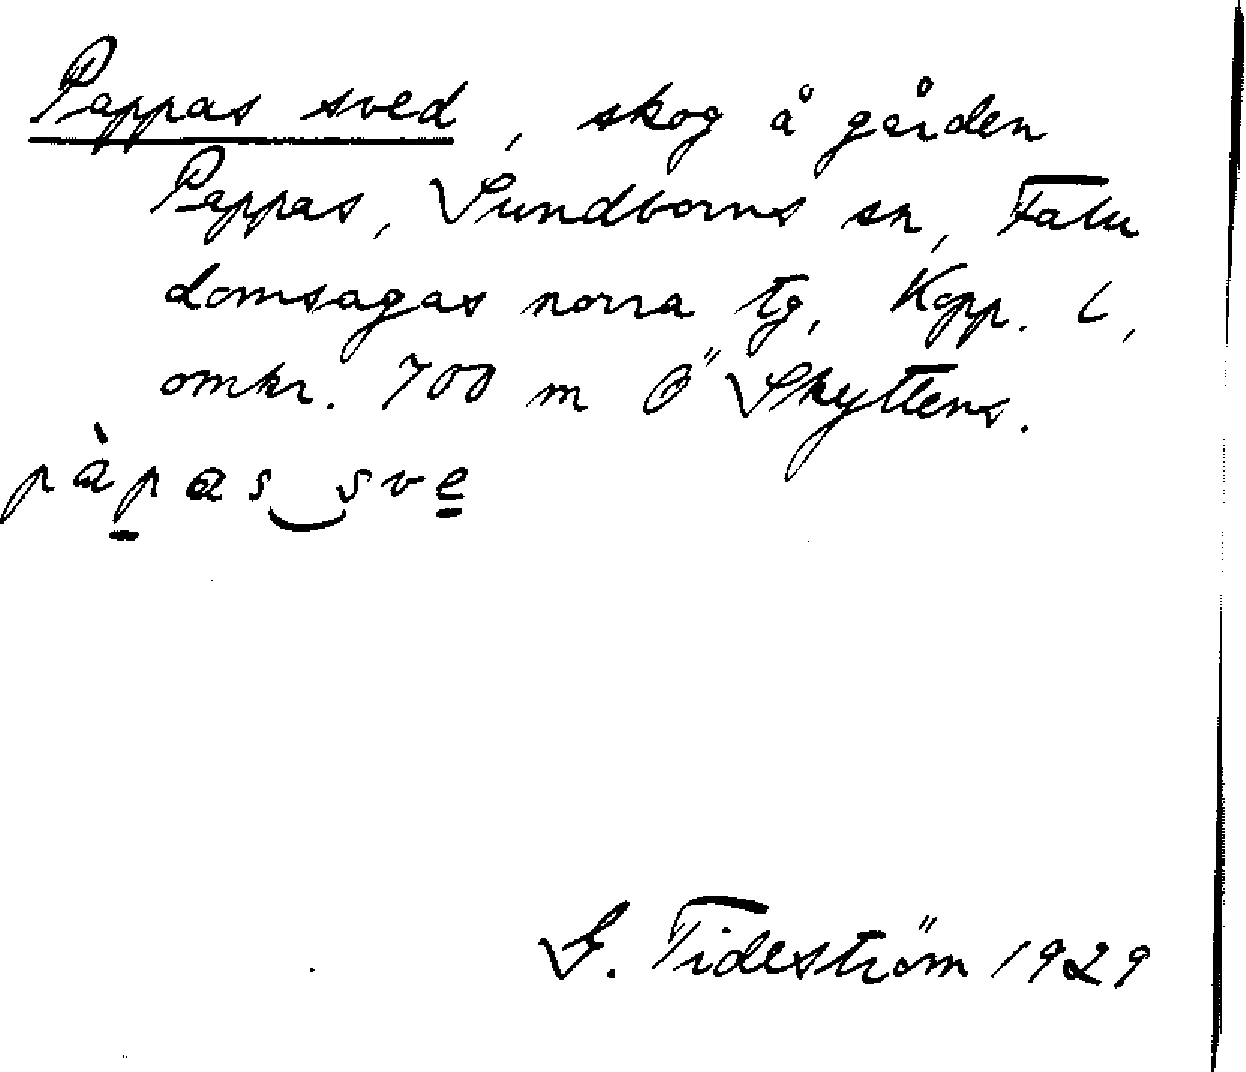 Pappas sved, skog å gården
Pappas, Sundborns sn, Falu
domsagas norra tg, Kopp. l,
omkr. 700 m Ö Skyttens.
pàpas‿sve
G. Tideström 1929